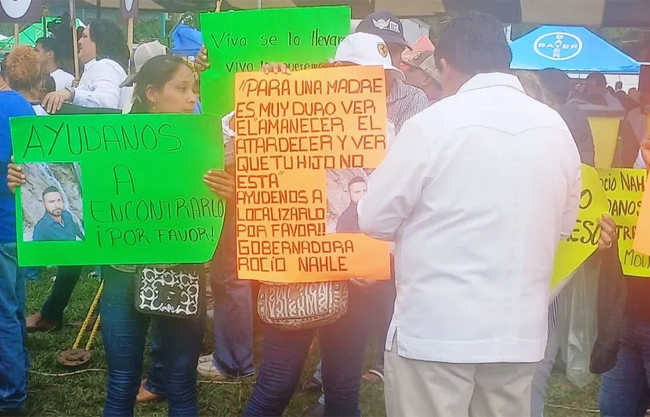 Vivo se lo llevaron
vivo lo queremos
BAYER
AYUDANOS
A
ENCONTRARLO
¡POR FAVOR!
"PARA UNA MADRE
ES MUY DURO VER
EL AMANECER EL
ATARDECER Y VER
QUE TU HIJO NO
ESTA"
AYUDENOS A
LOCALIZARLO
POR FAVOR!!
GOBERNADORA
ROCIO NAHLE
ROCIO NAHLE